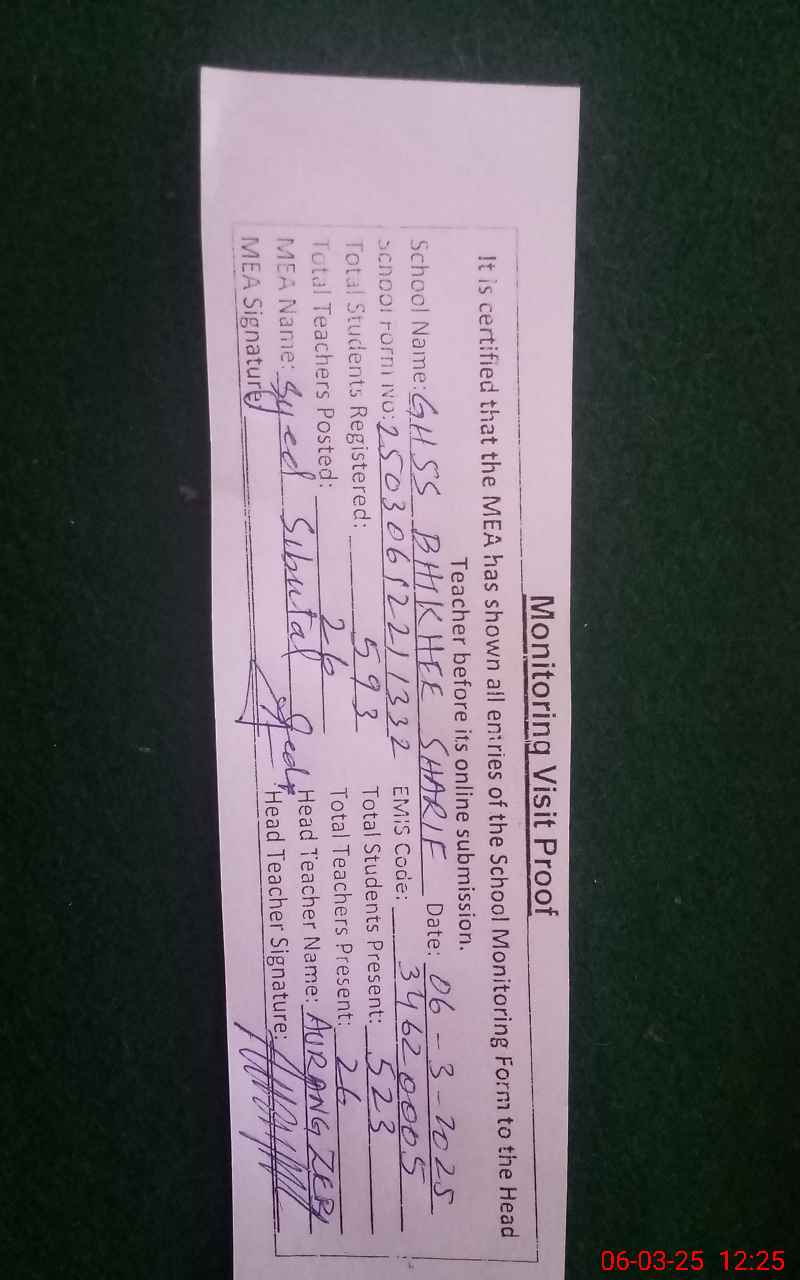 Monitoring Visit Proof
It is certified that the MEA has shown all entries of the School Monitoring Form to the Head
Teacher before its online submission.
School Name: GHSS BHIKHEE SHARIF Date: 06-3-2025
School Form No: EMIS Code: 34620005
Total Students Registered: 593 Total Students Present: 523
Total Teachers Posted: 26 Total Teachers Present: 26
MEA Name: Syed Head Teacher Name: AURANGZEB
MEA Signature Head Teacher Signature:
06-03-25 12:25